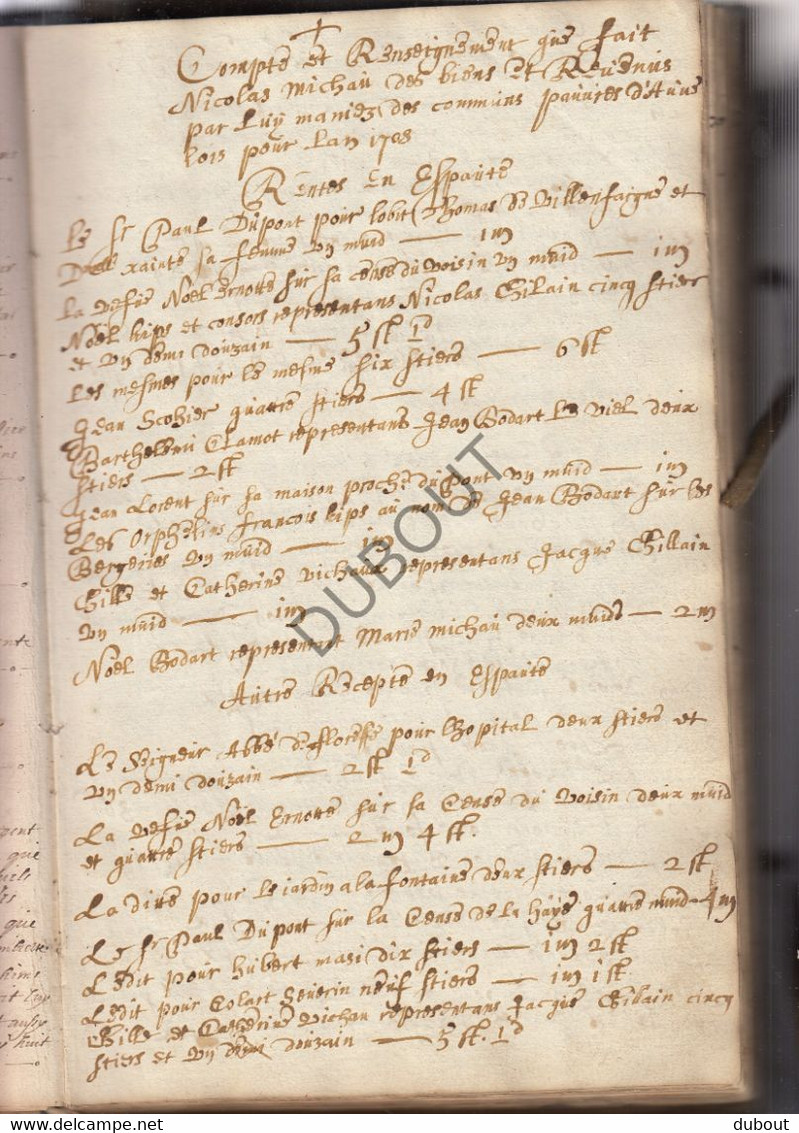 Compte et Renseignement que fait
Nicolas Michaù des biens Et Revenùs
par Lùy maniez des commùns paùvres d'Aùve
lois poùr Lan 1708
Rentes En Espaùte
Le Sr Paul Dùpont poùr lobit Thomas de Villenfaigne et
Delle xainte sa femme vn mùid — 1 m
La vefùe Noël Ernotte sùr sa cense dù voisin vn mùid — 1 m
Noël Kips et consors representans Nicolas Ghilain cincq stier
et vn demi doùzain — 5 st 1d
Les mesmes poùr le mesme six stiers — 6 st
Jean Scohier quattre stiers — 4 st
Barthelemi Clamot representans Jean Bodart le viel deùx
stiers — 2 st
Jean Lorent sùr sa maison proche dù pont vn mùid — 1 m
Les Orphelins francois Kips aù nom de Jean Bodart sùr les
Bergeries vn mùid — 1 m
Gille et Catherine vichaùx representans Jacque Ghilain
vn mùid — 1 m
Noël Bodart representant Marie michaù deùx mùids — 2 m
Aùtre Recepte en Espaùte
Le Seigneùr Abbé de floreffe poùr Hopital deùx stiers et
vn demi doùzain — 2 st 1d
La vefùe Noël Ernotte sùr sa Cense dù voisin deùx mùid
et quattre stiers — 2 m 4 st.
La ditte poùr le iardin a la fontaine deùx stiers — 2 st
Le Sr Paul Dùpont sùr la Cense de la haÿe quattre mùid — 4 m
Ledit poùr hùbert masi dix stiers — 1 m 2 st
Ledit poùr Colart Severin neùf stiers — 1 m 1 st
Gille et Catherine vichau representans Jacque Ghilain cincq
stiers et vn demi doùzain — 5 st. 1d
DUBOUT
delcampe.net
dubout